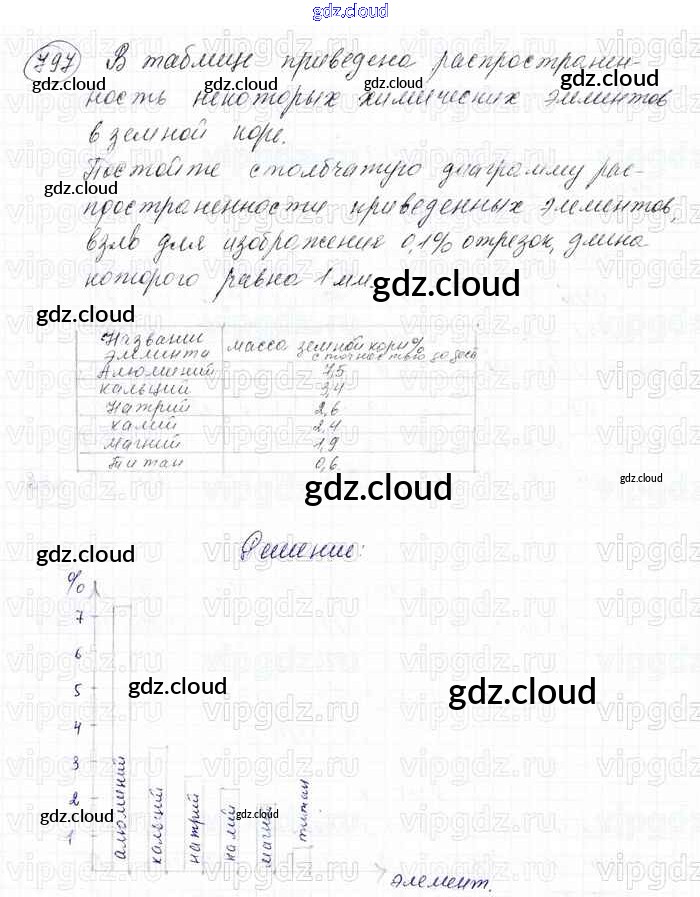 gdz.cloud
797 В таблице приведена распространен-
ность некоторых химических элементов
в земной коре.
Постойте столбчатую диаграмму рас-
пространенности приведенных элементов,
взяв для изображения 0,1% отрезок, длина
которого равна 1 мм.
Название элемента масса земной кори%
Алюминий 7,5
кальций 3,4
Натрий 2,6
калий 2,4
магний 1,9
Титан 0,6
Решение:
%
7
6
5
4
3
2
1
алюминий
кальций
натрий
калий
магний
титан
элемент.
gdz.cloud
gdz.cloud
gdz.cloud
gdz.cloud
gdz.cloud
gdz.cloud
gdz.cloud
gdz.cloud
gdz.cloud
gdz.cloud
gdz.cloud
gdz.cloud
gdz.cloud
vipgdz.ru